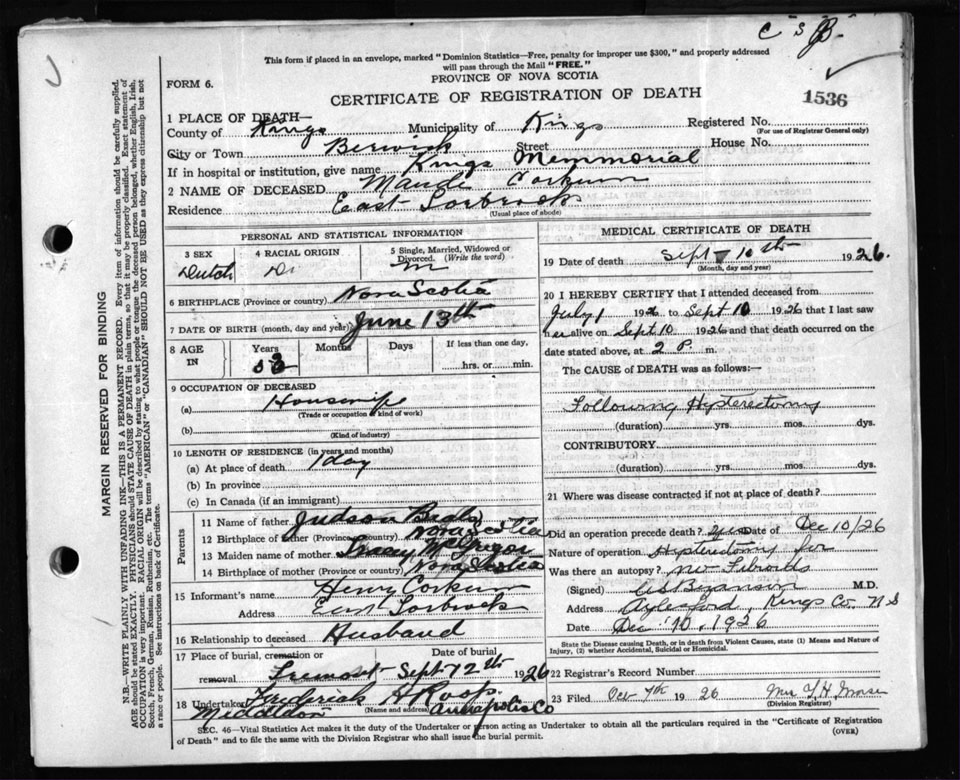 C S B.
This form if placed in an envelope, marked "Dominion Statistics—Free, penalty for improper use $300," and properly addressed
will pass through the Mail "FREE."
FORM 6.
PROVINCE OF NOVA SCOTIA
CERTIFICATE OF REGISTRATION OF DEATH
1536
1 PLACE OF DEATH—
County of Kings Municipality of Kings Registered No.
(For use of Registrar General only)
City or Town Berwick Street House No.
If in hospital or institution, give name Kings Memmorial
2 NAME OF DECEASED Maude Corkum
Residence East Torbrook
(Usual place of abode)
PERSONAL AND STATISTICAL INFORMATION
3 SEX 4 RACIAL ORIGIN 5 Single, Married, Widowed or Divorced. (Write the word)
Dutch m
6 BIRTHPLACE (Province or country) Nova Scotia
7 DATE OF BIRTH (month, day and year) June 13th
8 AGE IN Years Months Days If less than one day,
hrs. or min.
9 OCCUPATION OF DECEASED
(a) Housewife
(Trade or occupation or kind of work)
(b)
(Kind of industry)
10 LENGTH OF RESIDENCE (in years and months)
(a) At place of death 1 day
(b) In province
(c) In Canada (if an immigrant)
Parents
11 Name of father Judson
12 Birthplace of father (Province or country) Nova Scotia
13 Maiden name of mother McGregor
14 Birthplace of mother (Province or country) Nova Scotia
15 Informant's name Henry Corkum
Address East Torbrook
16 Relationship to deceased Husband
17 Place of burial, cremation or removal Date of burial
Fremont Sept 12th 1926
18 Undertaker Frederick H Roop
(Name and address) Annapolis Co
Middleton
MEDICAL CERTIFICATE OF DEATH
19 Date of death Sept 10th 1926.
(Month, day and year)
20 I HEREBY CERTIFY that I attended deceased from
July 1 1926 to Sept 10 1926 that I last saw
her alive on Sept 10 1926 and that death occurred on the
date stated above, at 2 P. m.
The CAUSE of DEATH was as follows:—
Following Hysterectomy
(duration) yrs. mos. dys.
CONTRIBUTORY.
(duration) yrs. mos. dys.
21 Where was disease contracted if not at place of death?
Did an operation precede death? yes Date of Dec 10/26
Nature of operation Hysterectomy for
Was there an autopsy? no Fibroids
(Signed) M.D.
Address Aylesford, Kings Co. N S
Date Dec 10, 1926
State the Disease causing Death, or in death from Violent Causes, state (1) Means and Nature of
Injury, (2) whether Accidental, Suicidal or Homicidal.
22 Registrar's Record Number
23 Filed Oct 7th 1926 Mrs Y. H. Morse
(Division Registrar)
SEC. 46—Vital Statistics Act makes it the duty of the Undertaker or person acting as Undertaker to obtain all the particulars required in the "Certificate of Registration
of Death" and to file the same with the Division Registrar who shall issue the burial permit.
(OVER)
MARGIN RESERVED FOR BINDING
N.B.—WRITE PLAINLY WITH UNFADING INK—THIS IS A PERMANENT RECORD. Every item of information should be carefully supplied.
AGE should be stated EXACTLY. PHYSICIANS should STATE CAUSE OF DEATH in plain terms, so that it may be properly classified. Exact statement of
OCCUPATION is very important. RACIAL ORIGIN will be described by stating to what people or tongue the deceased person belonged, whether English, Irish,
Scotch, French, German, Russian, Ruthenian, etc. The terms "AMERICAN" or "CANADIAN" SHOULD NOT BE USED as they express citizenship but not
a race or people. See instructions on back of Certificate.